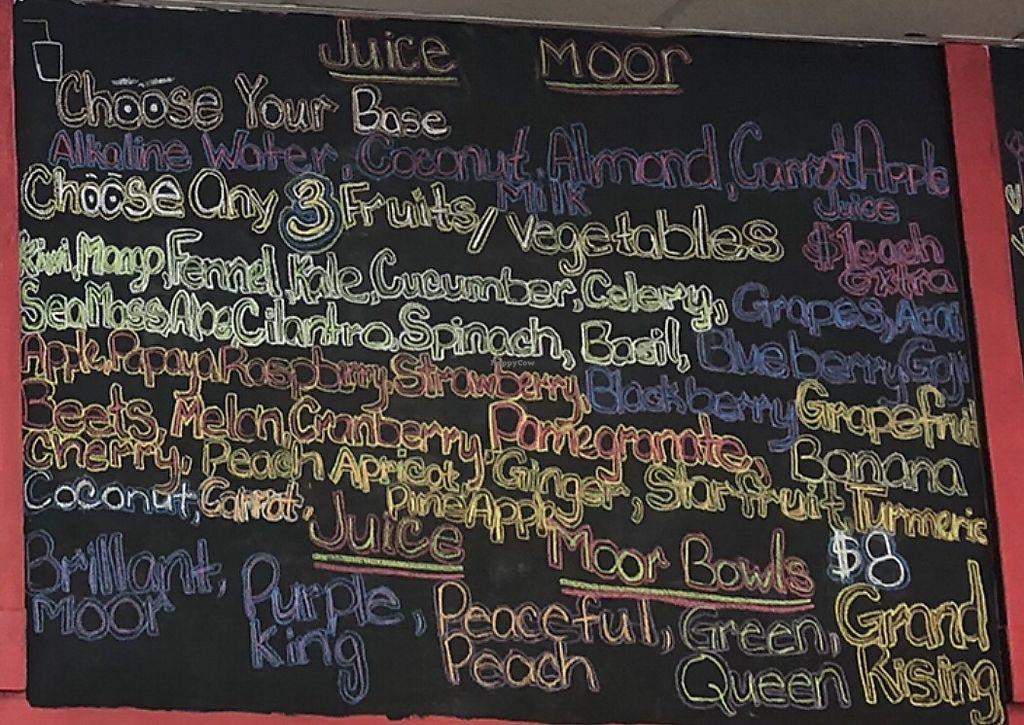 Juice Moor
Choose Your Base
Alkaline Water, Coconut, Almond, Carrot Apple
Milk Juice
Choose Any 3 Fruits/Vegetables
$1 each
extra
Kiwi, Mango, Fennel, Kale, Cucumber, Celery, Grapes, Acai
Sea Moss, Aloe, Cilantro, Spinach, Basil, Blueberry, Goji
Apple, Papaya, Raspbirry, Strawberry, Blackberry Grapefruit
Beets, Melan, Cranberry, Pomegranate, Banana
Cherry, Peach Apricot, Ginger, Starfruit, Turmeric
Coconut, Carrot, PineApple
Juice Moor Bowls $8
Brilliant, Purple, Peaceful, Green, Grand
Moor King Peach Queen Rising
HappyCow